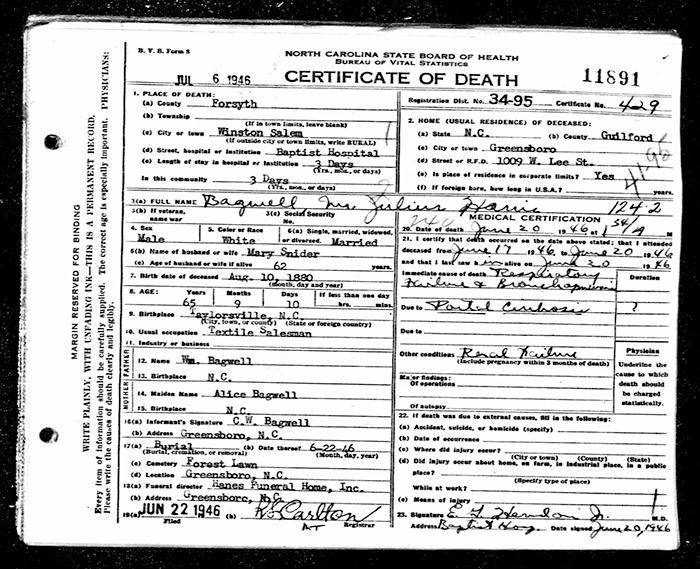 MARGIN RESERVED FOR BINDING
WRITE PLAINLY, WITH UNFADING INK—THIS IS A PERMANENT RECORD.
Every item of information should be carefully supplied. The correct age is especially important. PHYSICIANS:
Please write the causes of death clearly and legibly.
B. V. S. Form 8
NORTH CAROLINA STATE BOARD OF HEALTH
BUREAU OF VITAL STATISTICS
JUL 6 1946
CERTIFICATE OF DEATH
11891
1. PLACE OF DEATH:
(a) County Forsyth
(b) Township
(If in town limits, leave blank)
(c) City or town Winston Salem
(If outside city or town limits, write RURAL)
(d) Street, hospital or institution Baptist Hospital
(e) Length of stay in hospital or institution 3 Days
(Yrs., mos., or days)
In this community 3 Days
(Yrs., mos., or days)
Registration Dist. No. 34-95 Certificate No. 429
2. HOME (USUAL RESIDENCE) OF DECEASED:
(a) State N.C. (b) County Guilford
(c) City or town Greensboro
(d) Street or R.F.D. 1009 W. Lee St.
(e) Is place of residence in corporate limits? Yes
(f) If foreign born, how long in U.S.A.? years.
3(a) FULL NAME Bagwell Mr. Julius Harris
1242
3(b) If veteran, name war
3(c) Social Security No.
4. Sex Male
5. Color or Race White
6(a) Single, married, widowed, or divorced. Married
6(b) Name of husband or wife Mary Snider
6(c) Age of husband or wife if alive 62 years
7. Birth date of deceased Aug. 10, 1880
(month, day and year)
8. AGE: Years 65 Months 9 Days 10 If less than one day hrs. min.
9. Birthplace Taylorsville, N.C.
(City, town, or county) (State or foreign country)
10. Usual occupation Textile Salesman
11. Industry or business
FATHER
12. Name Wm. Bagwell
13. Birthplace N.C.
MOTHER
14. Maiden Name Alice Bagwell
15. Birthplace N.C.
16(a) Informant's Signature C.W. Bagwell
(b) Address Greensboro, N.C.
17(a) Burial (b) Date thereof 6-22-46
(Burial, cremation, or removal) (Month, day, year)
(c) Cemetery Forest Lawn
(d) Location Greensboro, N.C.
18(a) Funeral director Hanes Funeral Home, Inc.
(b) Address Greensboro, N.C.
19(a) JUN 22 1946 (b) Carlton
Filed Registrar
MEDICAL CERTIFICATION
20. Date of death June 20 1946 at
21. I certify that death occurred on the date above stated; that I attended
deceased from June 17 1946 to June 20 1946
and that I last saw alive on June 20 1946
Immediate cause of death Respiratory
Duration
Failure & Bronchopneumonia
Due to Portal Cirrhosis ?
Due to
Other conditions Renal Failure
(Include pregnancy within 3 months of death)
Major findings:
Of operations
Of autopsy
Physician
Underline the cause to which death should be charged statistically.
22. If death was due to external causes, fill in the following:
(a) Accident, suicide, or homicide (specify)
(b) Date of occurrence
(c) Where did injury occur?
(City or town) (County) (State)
(d) Did injury occur about home, on farm, in industrial place, in a public
place?
(Specify type of place)
While at work?
(e) Means of injury
23. Signature E. L. Herndon Jr. M.D.
Address Baptist Hosp. Date signed June 20, 1946